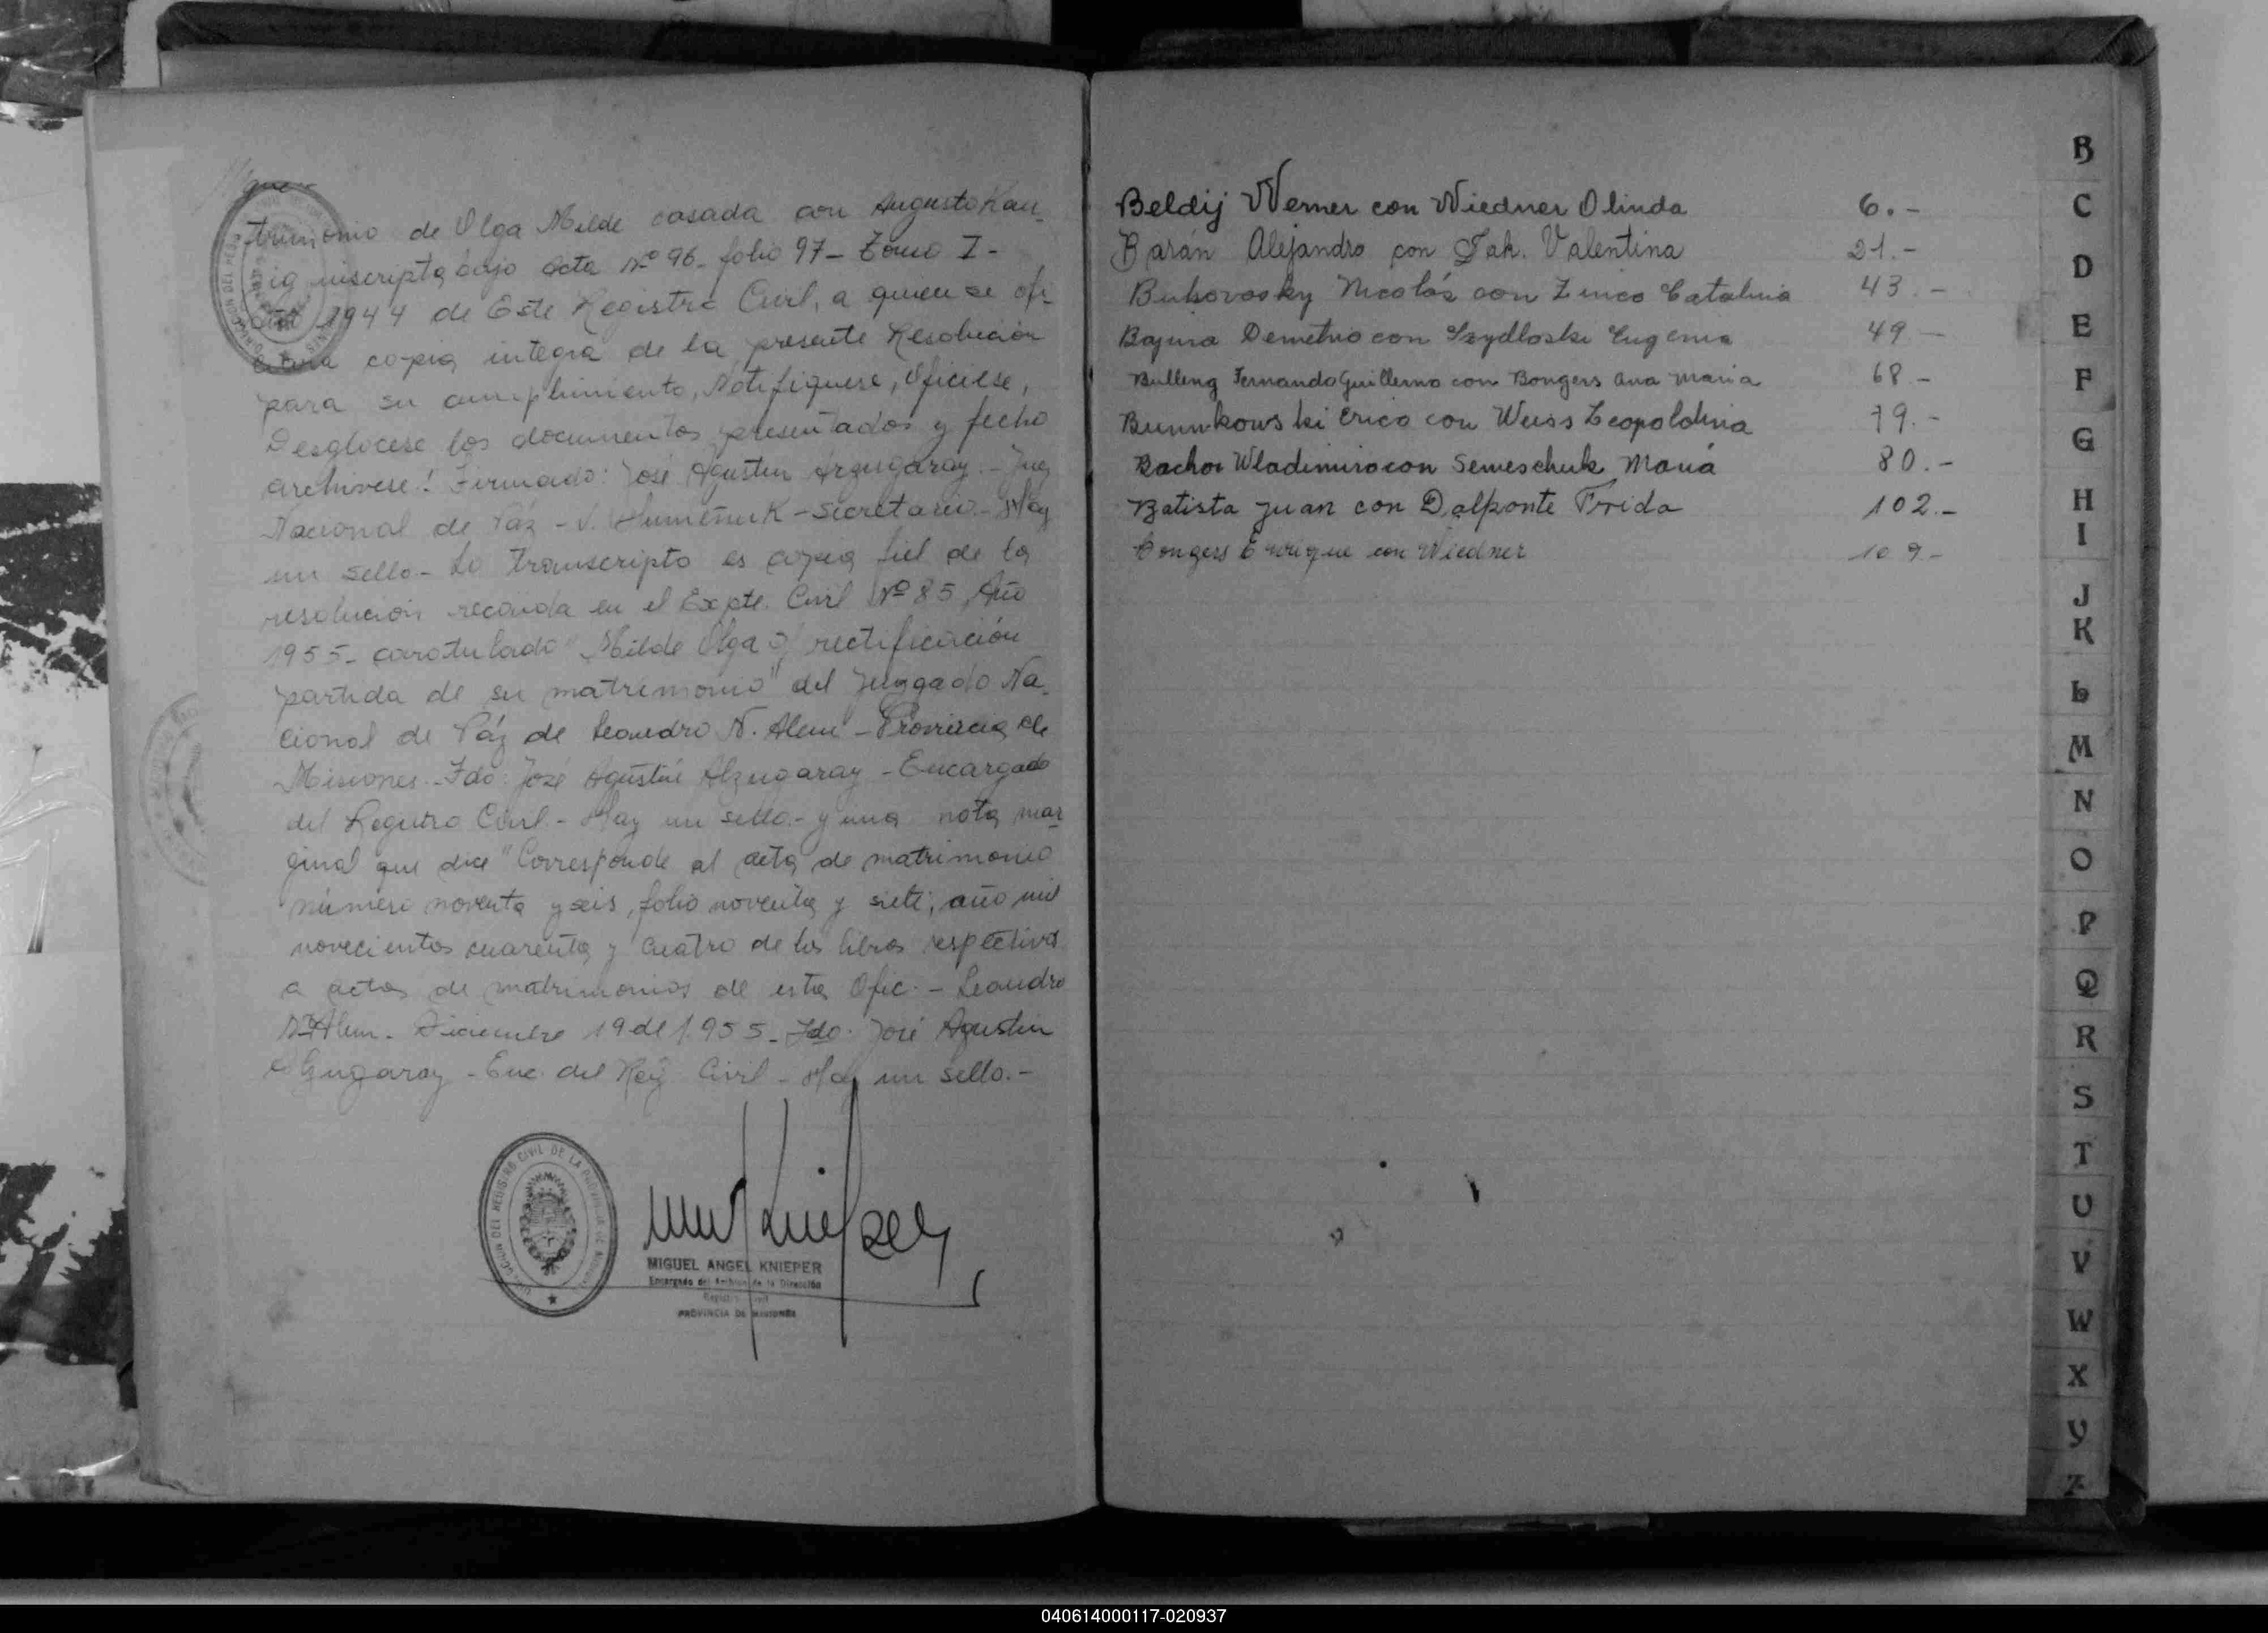 trimonio de Olga Milde casada con Augusto Kau-
zig inscripta bajo acta Nº 96- folio 97- Tomo I-
año 1944 de Este Registro Civil, a quien se ofi-
copia integra de la presente Resolución
para su cumplimiento, Notifiquese, Oficiese,
Desglocese los documentos presentados y fecho
archivese! Firmado: José Agustin Azugaray - Juez
Nacional de Páz - V. Humeñuk - Secretario.- Hay
un sello.- Lo transcripto es copia fiel de la
resolución recaida en el Expte. Civil Nº 85 Año
1955- caratulado "Milde Olga s/ rectificación
partida de su matrimonio" del Juzgado Na-
cional de Páz de Leandro N. Alem - Provincia de
Misiones.- Fdo: José Agustín Alzugaray - Encargado
del Registro Civil.- Hay un sello.- y una nota mar
ginal que dice "Corresponde al acta de matrimonio
número noventa y seis, folio noventa y siete, año mil
novecientos cuarenta y cuatro de los libros respectivos
a actas de matrimonios de esta Ofic. - Leandro
N. Alem. Diciembre 19 de 1955- Fdo. José Agustin
Alzugaray - Enc. del Reg Civil - Hay un sello.-
DIRECCION DEL REGISTRO CIVIL DE LA PROVINCIA DE MISIONES
MIGUEL ANGEL KNIEPER
Encargado del Archivo de la Dirección
Registro Civil
PROVINCIA DE MISIONES
Beldij Werner con Wiedner Olinda 6.-
Barán Alejandro con Tak. Valentina 21.-
Bukovosky Nicolás con Zinico Catalina 43.-
Bajura Demetrio con Szydloski Eugenia 49-
Bulleng Fernando Guillermo con Bongers Ana Maria 68.-
Bunnkowski Erico con Weiss Leopoldina 79.-
Bachoi Wladimiro con Semeschuk María 80.-
Batista Juan con Dalponte Frida 102.-
Bongers Enrique con Wiedner 109-
B
C
D
E
F
G
H
I
J
K
L
M
N
O
P
Q
R
S
T
U
V
W
X
Y
Z
040614000117-020937